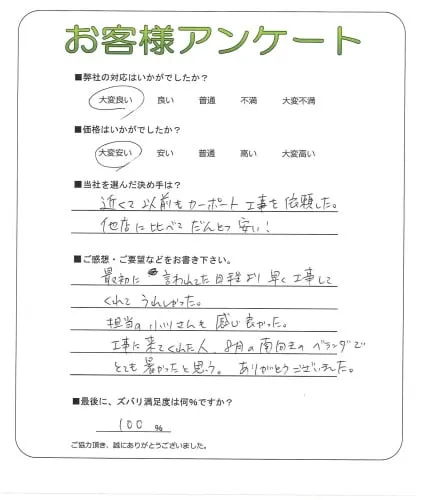 お客様アンケート
■弊社の対応はいかがでしたか?
大変良い 良い 普通 不満 大変不満
■価格はいかがでしたか?
大変安い 安い 普通 高い 大変高い
■当社を選んだ決め手は?
近くて以前もカーポート工事を依頼した。
他店に比べてだんとつ安い!
■ご感想・ご要望などをお書き下さい。
最初に 言われてた日程より早く工事して
くれてうれしかった。
担当の小川さんも感じ良かった。
工事に来てくれた人、8月の南向きのベランダで
とても暑かったと思う。ありがとうございました。
■最後に、ズバリ満足度は何%ですか?
100 %
ご協力頂き、誠にありがとうございました。